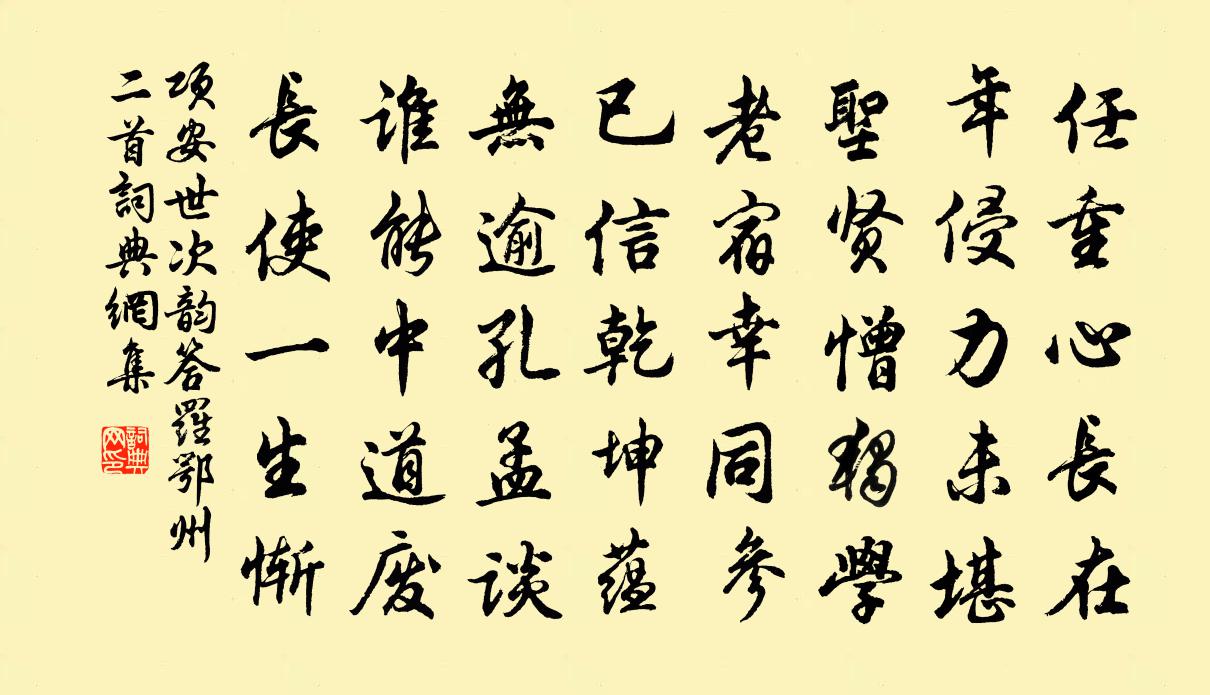 任重心長在
年侵力未堪
聖贤憎獨學
老宿幸同參
已信乾坤蕴
無逾孔孟談
谁能中道废
長使一生惭
项安世次韵答羅鄂州
二首詞典網集
詞典网印